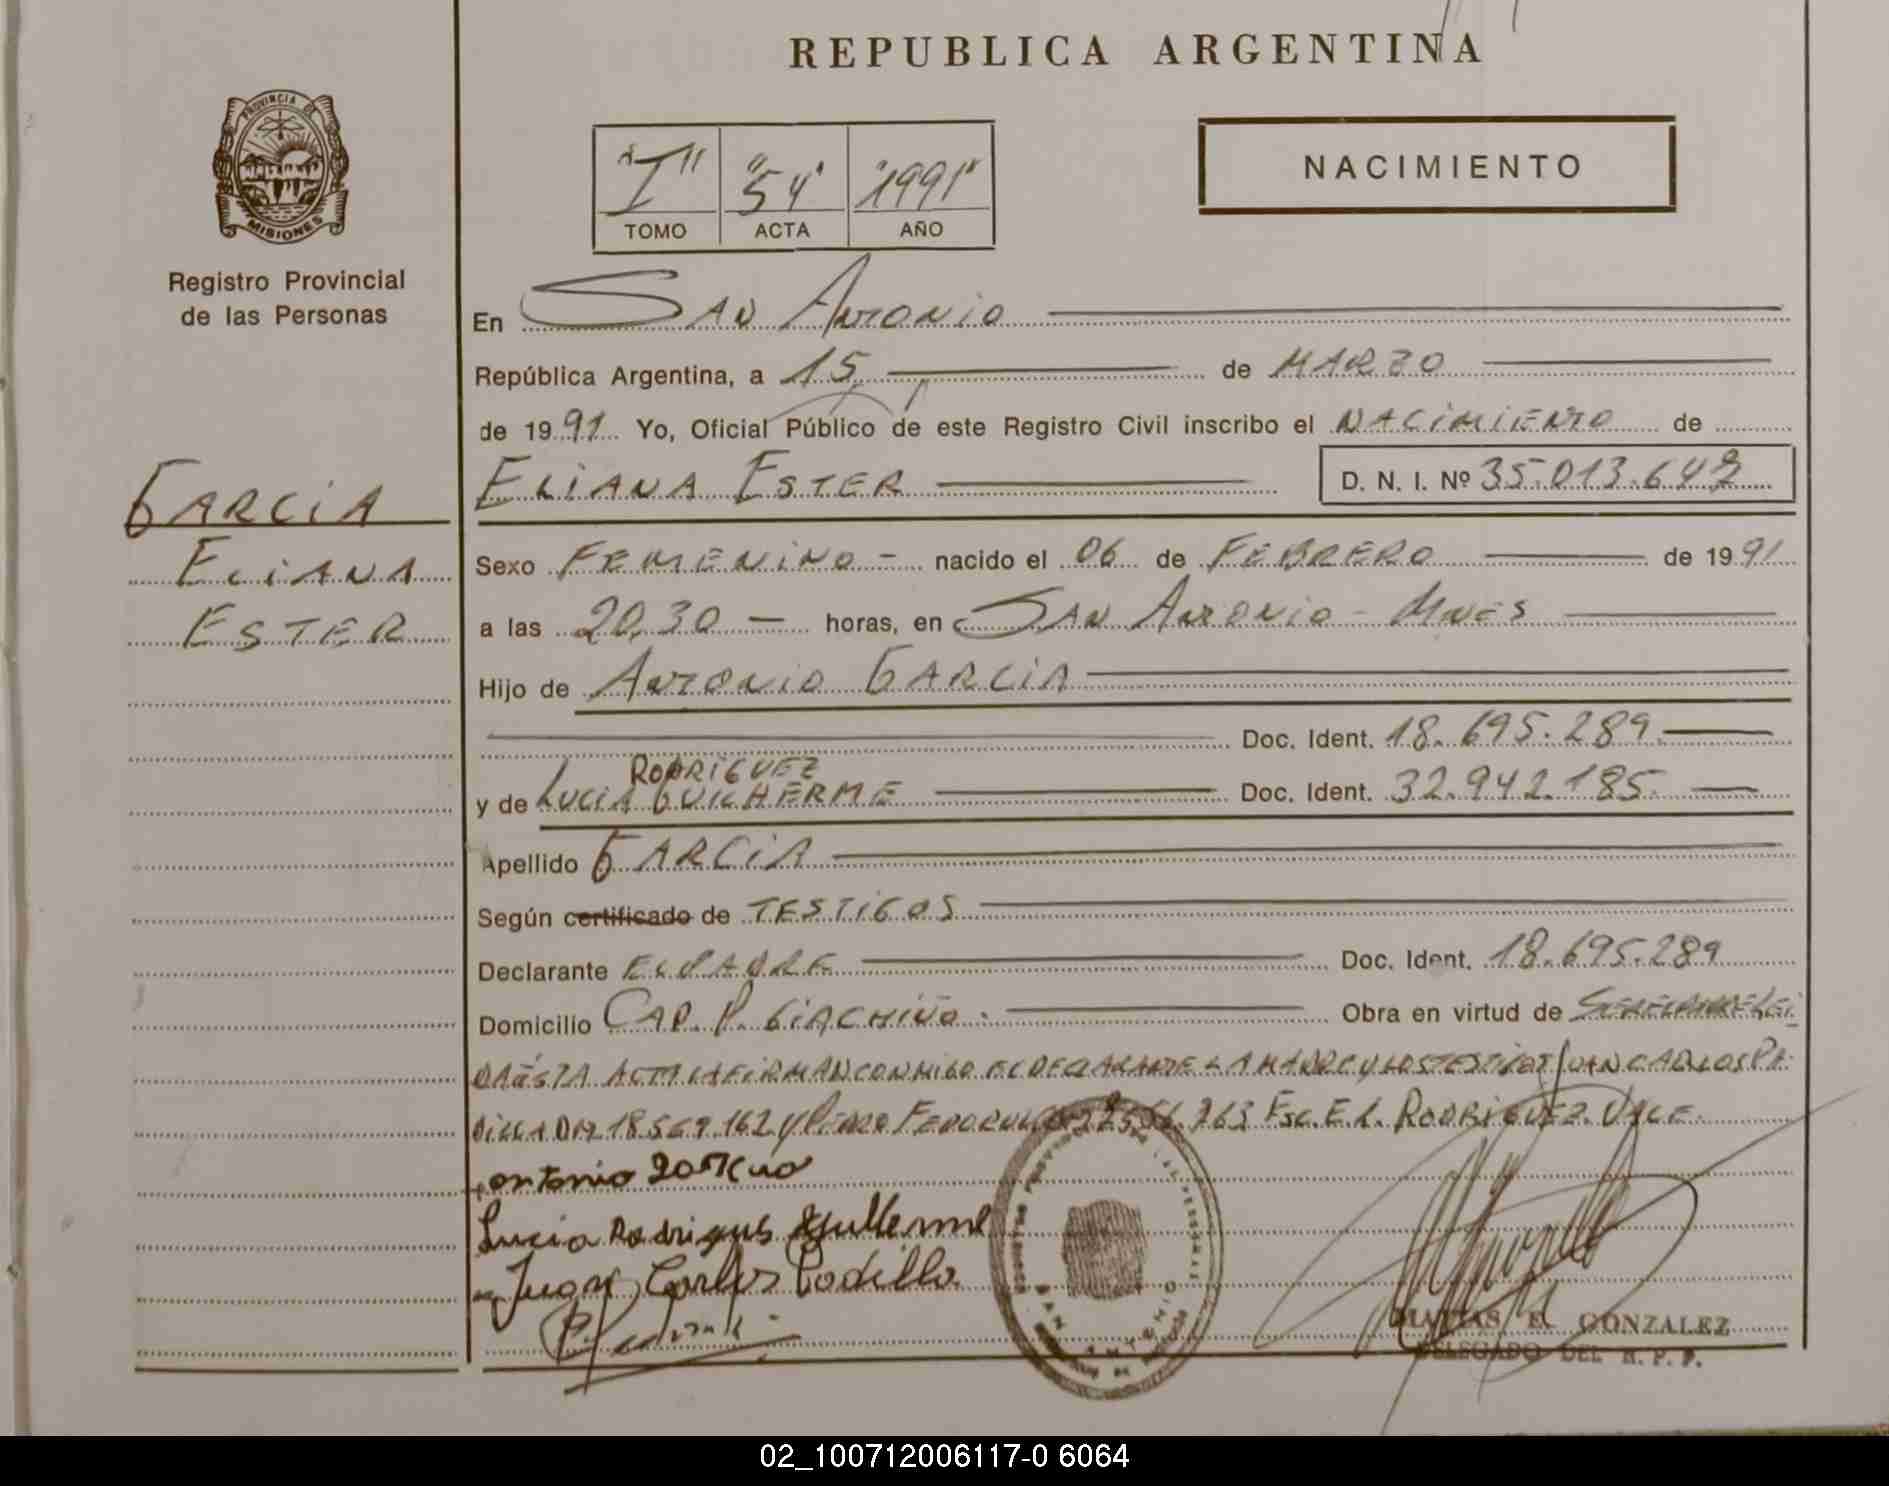 REPUBLICA ARGENTINA
PROVINCIA DE
MISIONES
Registro Provincial
de las Personas
"I" "54" "1991"
TOMO ACTA AÑO
NACIMIENTO
En SAN ANTONIO
República Argentina, a 15 de MARZO
de 1991 Yo, Oficial Público de este Registro Civil inscribo el NACIMIENTO de
ELIANA ESTER D. N. I. Nº 35.013.642
GARCIA
ELIANA
ESTER
Sexo FEMENINO - nacido el 06 de FEBRERO de 1991
a las 20,30 — horas, en SAN ANTONIO - MNES
Hijo de ANTONIO GARCIA
Doc. Ident. 18.695.289
RODRIGUEZ
y de LUCIA GUILHERME Doc. Ident. 32.942.185
Apellido GARCIA
Según certificado de TESTIGOS
Declarante EL PADRE Doc. Ident. 18.695.289
Domicilio CAP. P. GIACHINO. Obra en virtud de SER EL PADRE LEI
DA ÉSTA ACTA LA FIRMAN CONMIGO EL DECLARANTE LA MADRE Y LOS TESTIGOS JUAN CARLOS PA
DILLA DNI 18.569.162 Y PEDRO ESC. E. L. RODRIGUEZ. VALE.
antonio
Lucia Rodrigues
Juan Carlos Padilla
MATIAS E. GONZALEZ
DELEGADO DEL R. P. P.
02_100712006117-0 6064